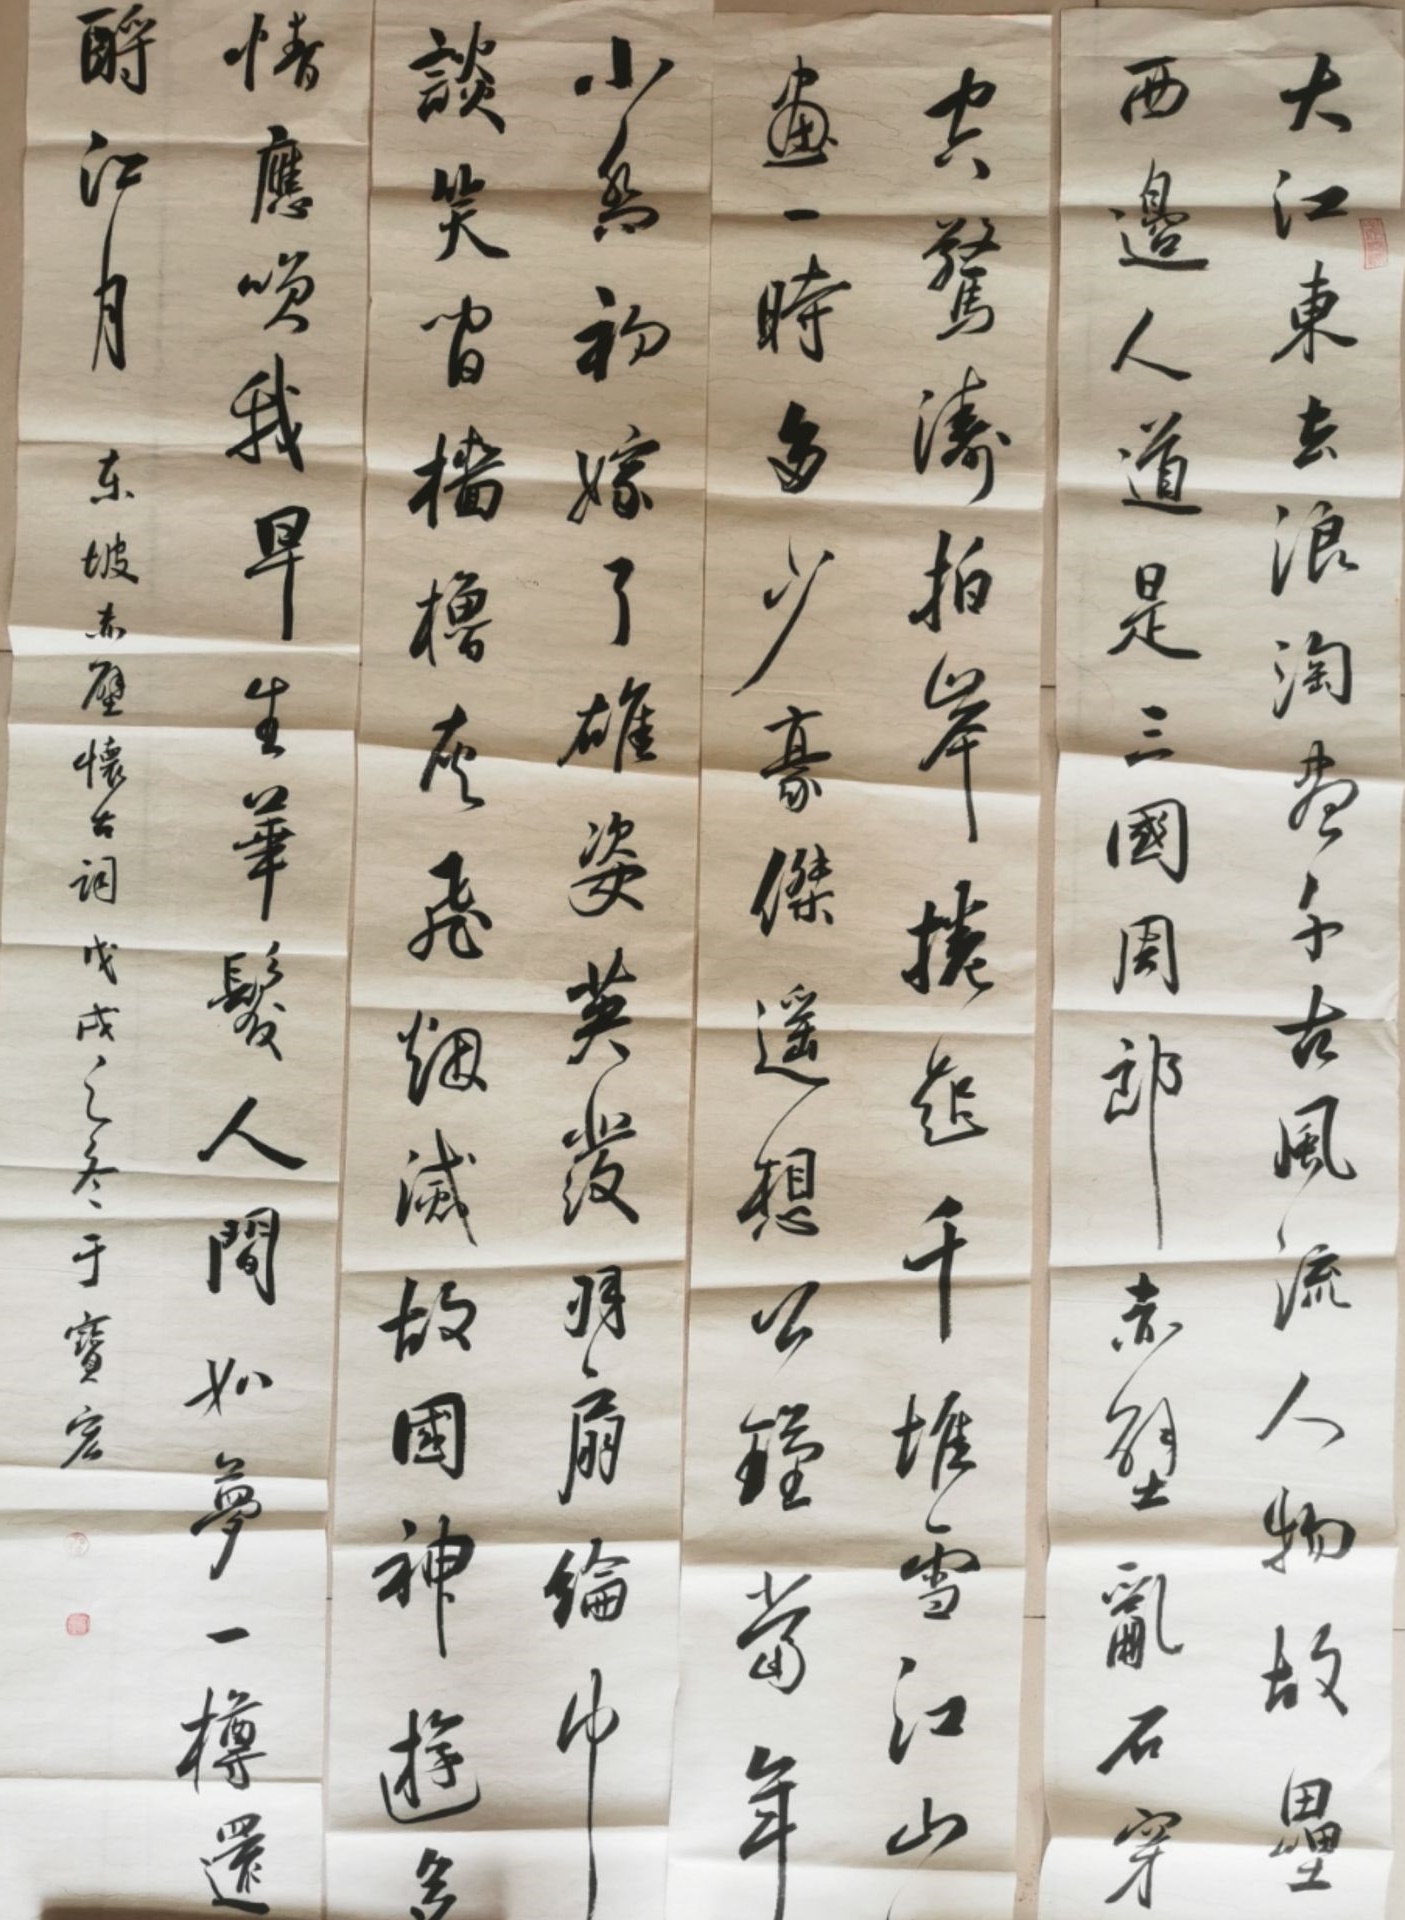 大江東去浪淘盡千古風流人物故壘
西邊人道是三國周郎赤壁亂石穿
空驚濤拍岸捲起千堆雪江山
畫一時多少豪傑遥想公瑾當年
小喬初嫁了雄姿英發羽扇綸巾
談笑間檣櫓灰飛烟滅故國神遊多
情應咲我早生華髮人間如夢一樽還
酹江月 东坡赤壁懷古詞 戊戌之冬于寶宏